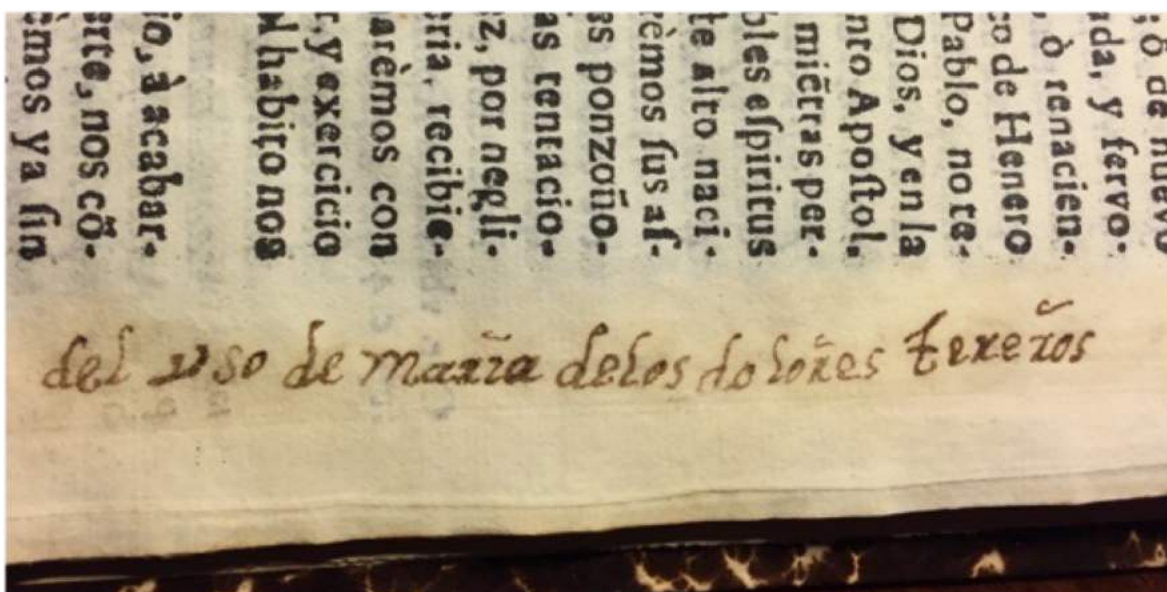 ; ò de nuevo
ida, y fervo-
, ò renacien-
ro de Henero
Pablo, no te-
Dios, y en la
nto Apoſtol,
miẽtras per-
bles eſpiritus
te alto naci-
rèmos ſus aſ-
as ponzoño-
as tentacio-
ez, por negli-
ria, recibie-
arèmos con
, y exercicio
l habito nos
io, à acabar-
erte, nos cõ-
èmos ya ſin
del vso de maria delos dolores tereros